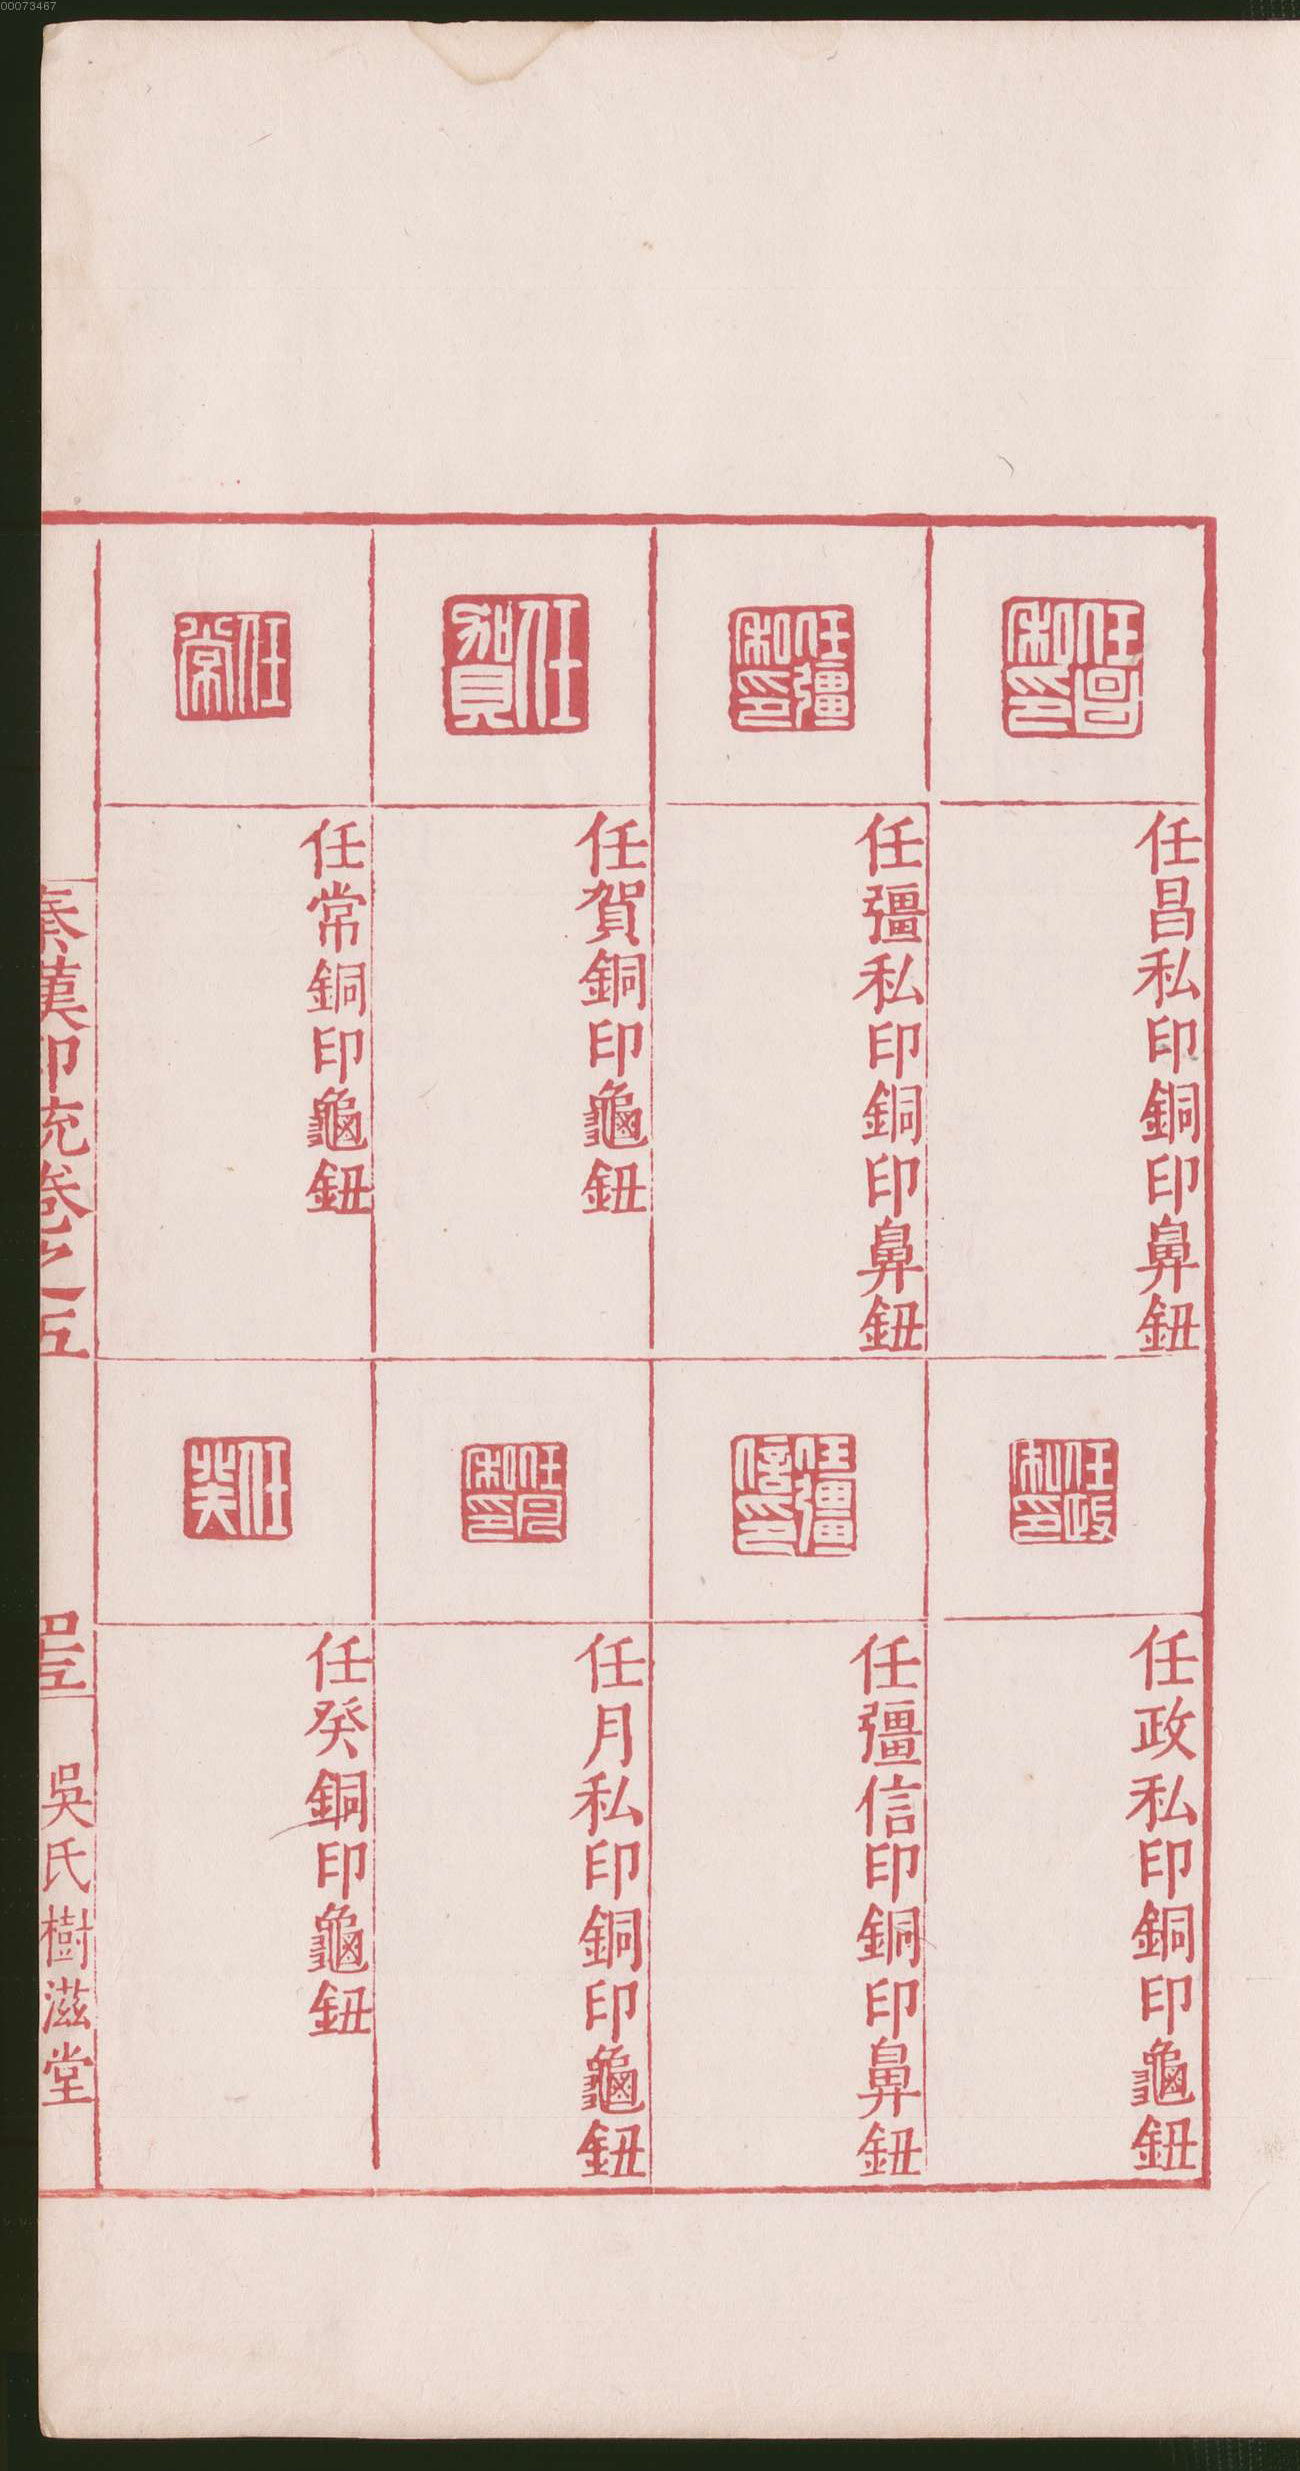 00073467
任昌私印
任昌私印銅印鼻鈕
任彊私印
任彊私印銅印鼻鈕
任賀
任賀銅印龜鈕
任常
任常銅印龜鈕
任政私印
任政私印銅印龜鈕
任彊信印
任彊信印銅印鼻鈕
任月私印
任月私印銅印龜鈕
任癸
任癸銅印龜鈕
秦漢印統卷之五
吳氏樹滋堂